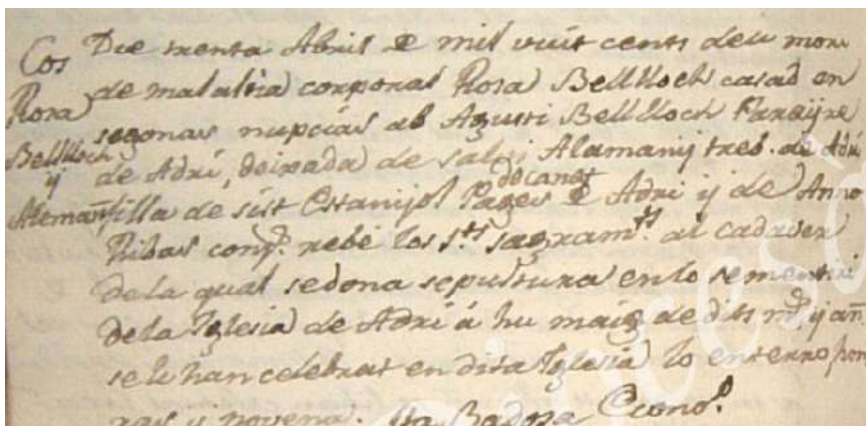 Cos
Rosa
Belllloch
y
Alemañ
Die trenta Abril de mil vuit cents deu mori
de malaltia corporal Rosa Bellloch casad en
segonas nupcias ab Agusti Bellloch Paraÿre
de Adri, deixada de Alamanÿ treb. de Adri
filla de Estanÿol Pages de Adri ÿ de Anna
de Canet
Ribas conj. rebé los sts sagramts. al cadaver
de la qual se dona sepultura en lo sementiri
de la Iglesia de Adri á hu maig de dits ÿ añ
se li han celebrat en dita Iglesia lo enterro hon
ras y novena. Badosa Econo.